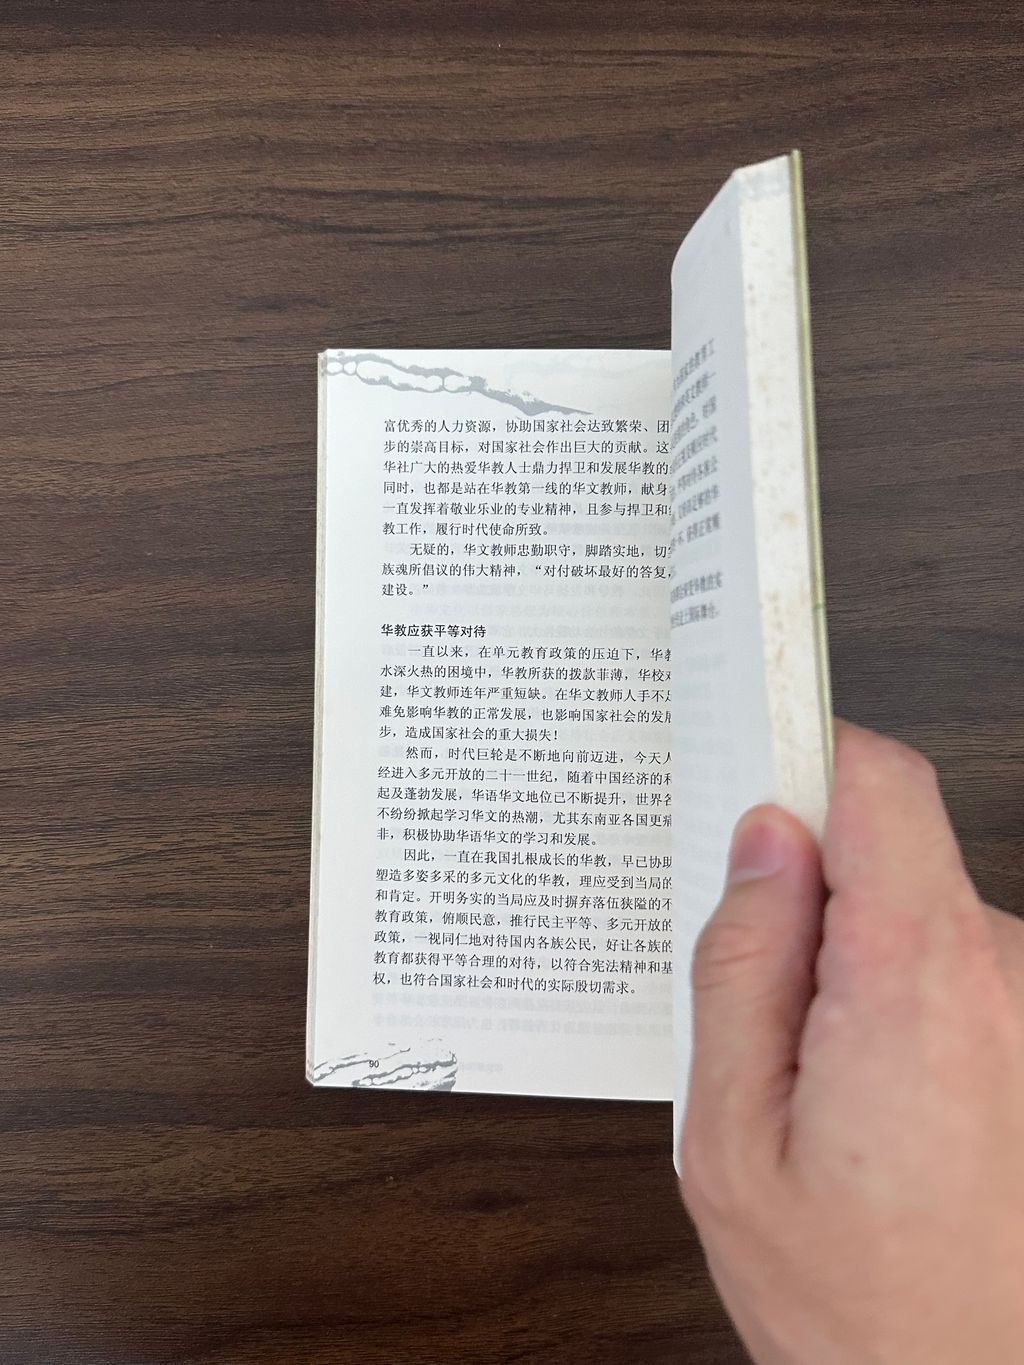 富优秀的人力资源，协助国家社会达致繁荣、团
步的崇高目标，对国家社会作出巨大的贡献。这
华社广大的热爱华教人士鼎力捍卫和发展华教的
同时，也都是站在华教第一线的华文教师，献身
一直发挥着敬业乐业的专业精神，且参与捍卫和
教工作，履行时代使命所致。
无疑的，华文教师忠勤职守，脚踏实地，切
族魂所倡议的伟大精神，“对付破坏最好的答复，
建设。”
华教应获平等对待
一直以来，在单元教育政策的压迫下，华教
水深火热的困境中，华教所获的拨款菲薄，华校
建，华文教师连年严重短缺。在华文教师人手不
难免影响华教的正常发展，也影响国家社会的发展
步，造成国家社会的重大损失！
然而，时代巨轮是不断地向前迈进，今天人
经进入多元开放的二十一世纪，随着中国经济的
起及蓬勃发展，华语华文地位已不断提升，世界各
不纷纷掀起学习华文的热潮，尤其东南亚各国更
非，积极协助华语华文的学习和发展。
因此，一直在我国扎根成长的华教，早已协助
塑造多姿多采的多元文化的华教，理应受到当局的
和肯定。开明务实的当局应及时摒弃落伍狭隘的不
教育政策，俯顺民意，推行民主平等、多元开放的
政策，一视同仁地对待国内各族公民，好让各族的
教育都获得平等合理的对待，以符合宪法精神和基
权，也符合国家社会和时代的实际殷切需求。
90